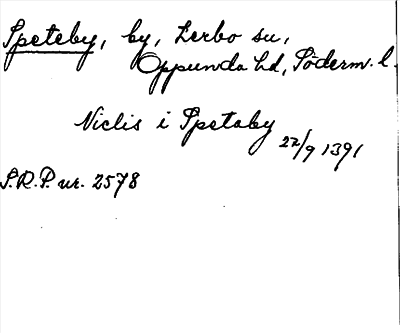 Speteby, by, Lerbo sn,
Oppunda hd, Söderm. l.
Niclis i Spetaby
22/9 1391
S.R.P. nr. 2578